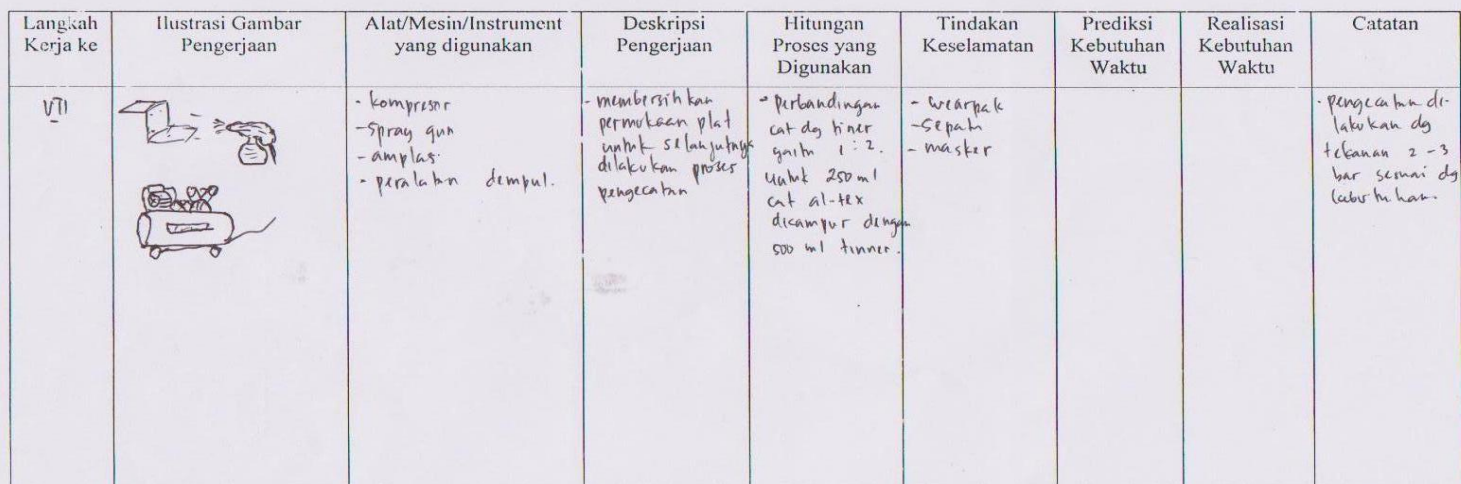 Langkah
Kerja ke
Ilustrasi Gambar
Pengerjaan
Alat/Mesin/Instrument
yang digunakan
Deskripsi
Pengerjaan
Hitungan
Proses yang
Digunakan
Tindakan
Keselamatan
Prediksi
Kebutuhan
Waktu
Realisasi
Kebutuhan
Waktu
Catatan
VII
- kompresor
- spray gun
- amplas.
- peralatan dempul.
- membersihkan
permukaan plat
untuk selanjutnya
dilakukan proses
pengecatan
- perbandingan
cat dg tiner
yaitu 1 : 2.
untuk 250 ml
cat al-tex
dicampur dengan
500 ml tinner.
- wearpak
- sepatu
- masker
- pengecatan di-
lakukan dg
tekanan 2 - 3
bar sesuai dg
kebutuhan.